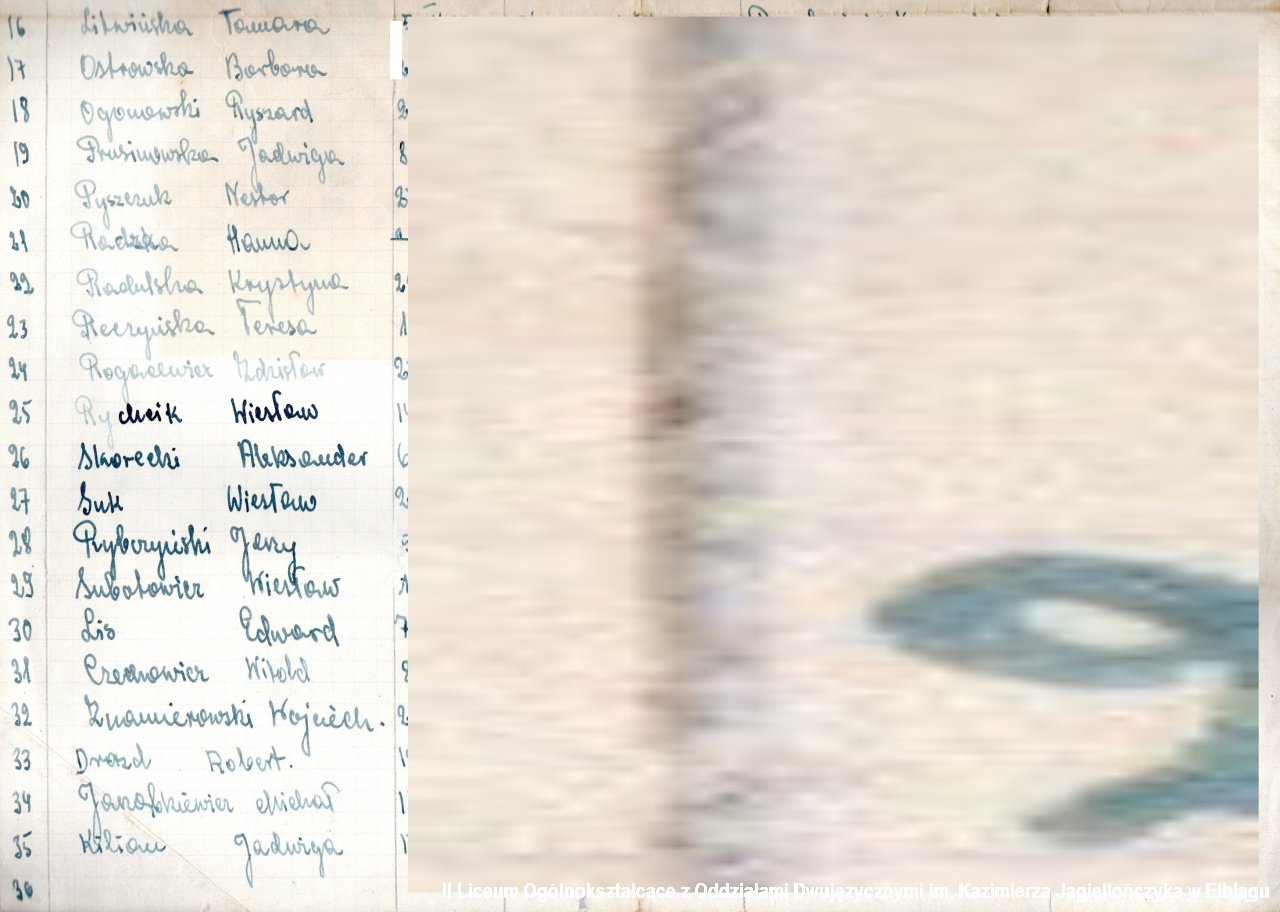 16 Litwińska Tamara
17 Ostrowska Barbara
18 Ogonowski Ryszard
19 Prusinowska Jadwiga 8
20 Pyszczuk Nestor
21 Radzka Hanna
22 Radulska Krystyna
23 Reczyńska Teresa
24 Rogacewicz Zdzisław
25 Rychcik Wiesław
26 Skorecki Aleksander
27 Suk Wiesław
28 Rybczyński Jerzy
29 Subotowicz Wiesław
30 Lis Edward 7
31 Czechowicz Witold
32 Znamierowski Wojciech.
33 Drozd Robert.
34 Michał
35 Kilian Jadwiga
36
II Liceum Ogólnokształcące z Oddziałami Dwujęzycznymi im. Kazimierza Jagiellończyka w Elblągu